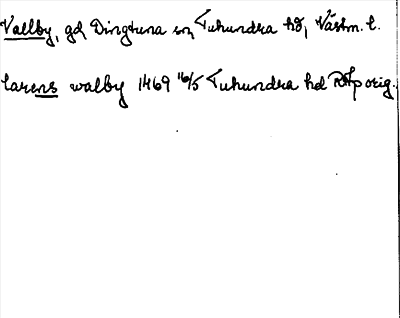 Vallby, gd Dingtuna sn, Tuhundra hd, Västm. l.
larens walby 1469 16/5 Tuhundra hd RAp orig.